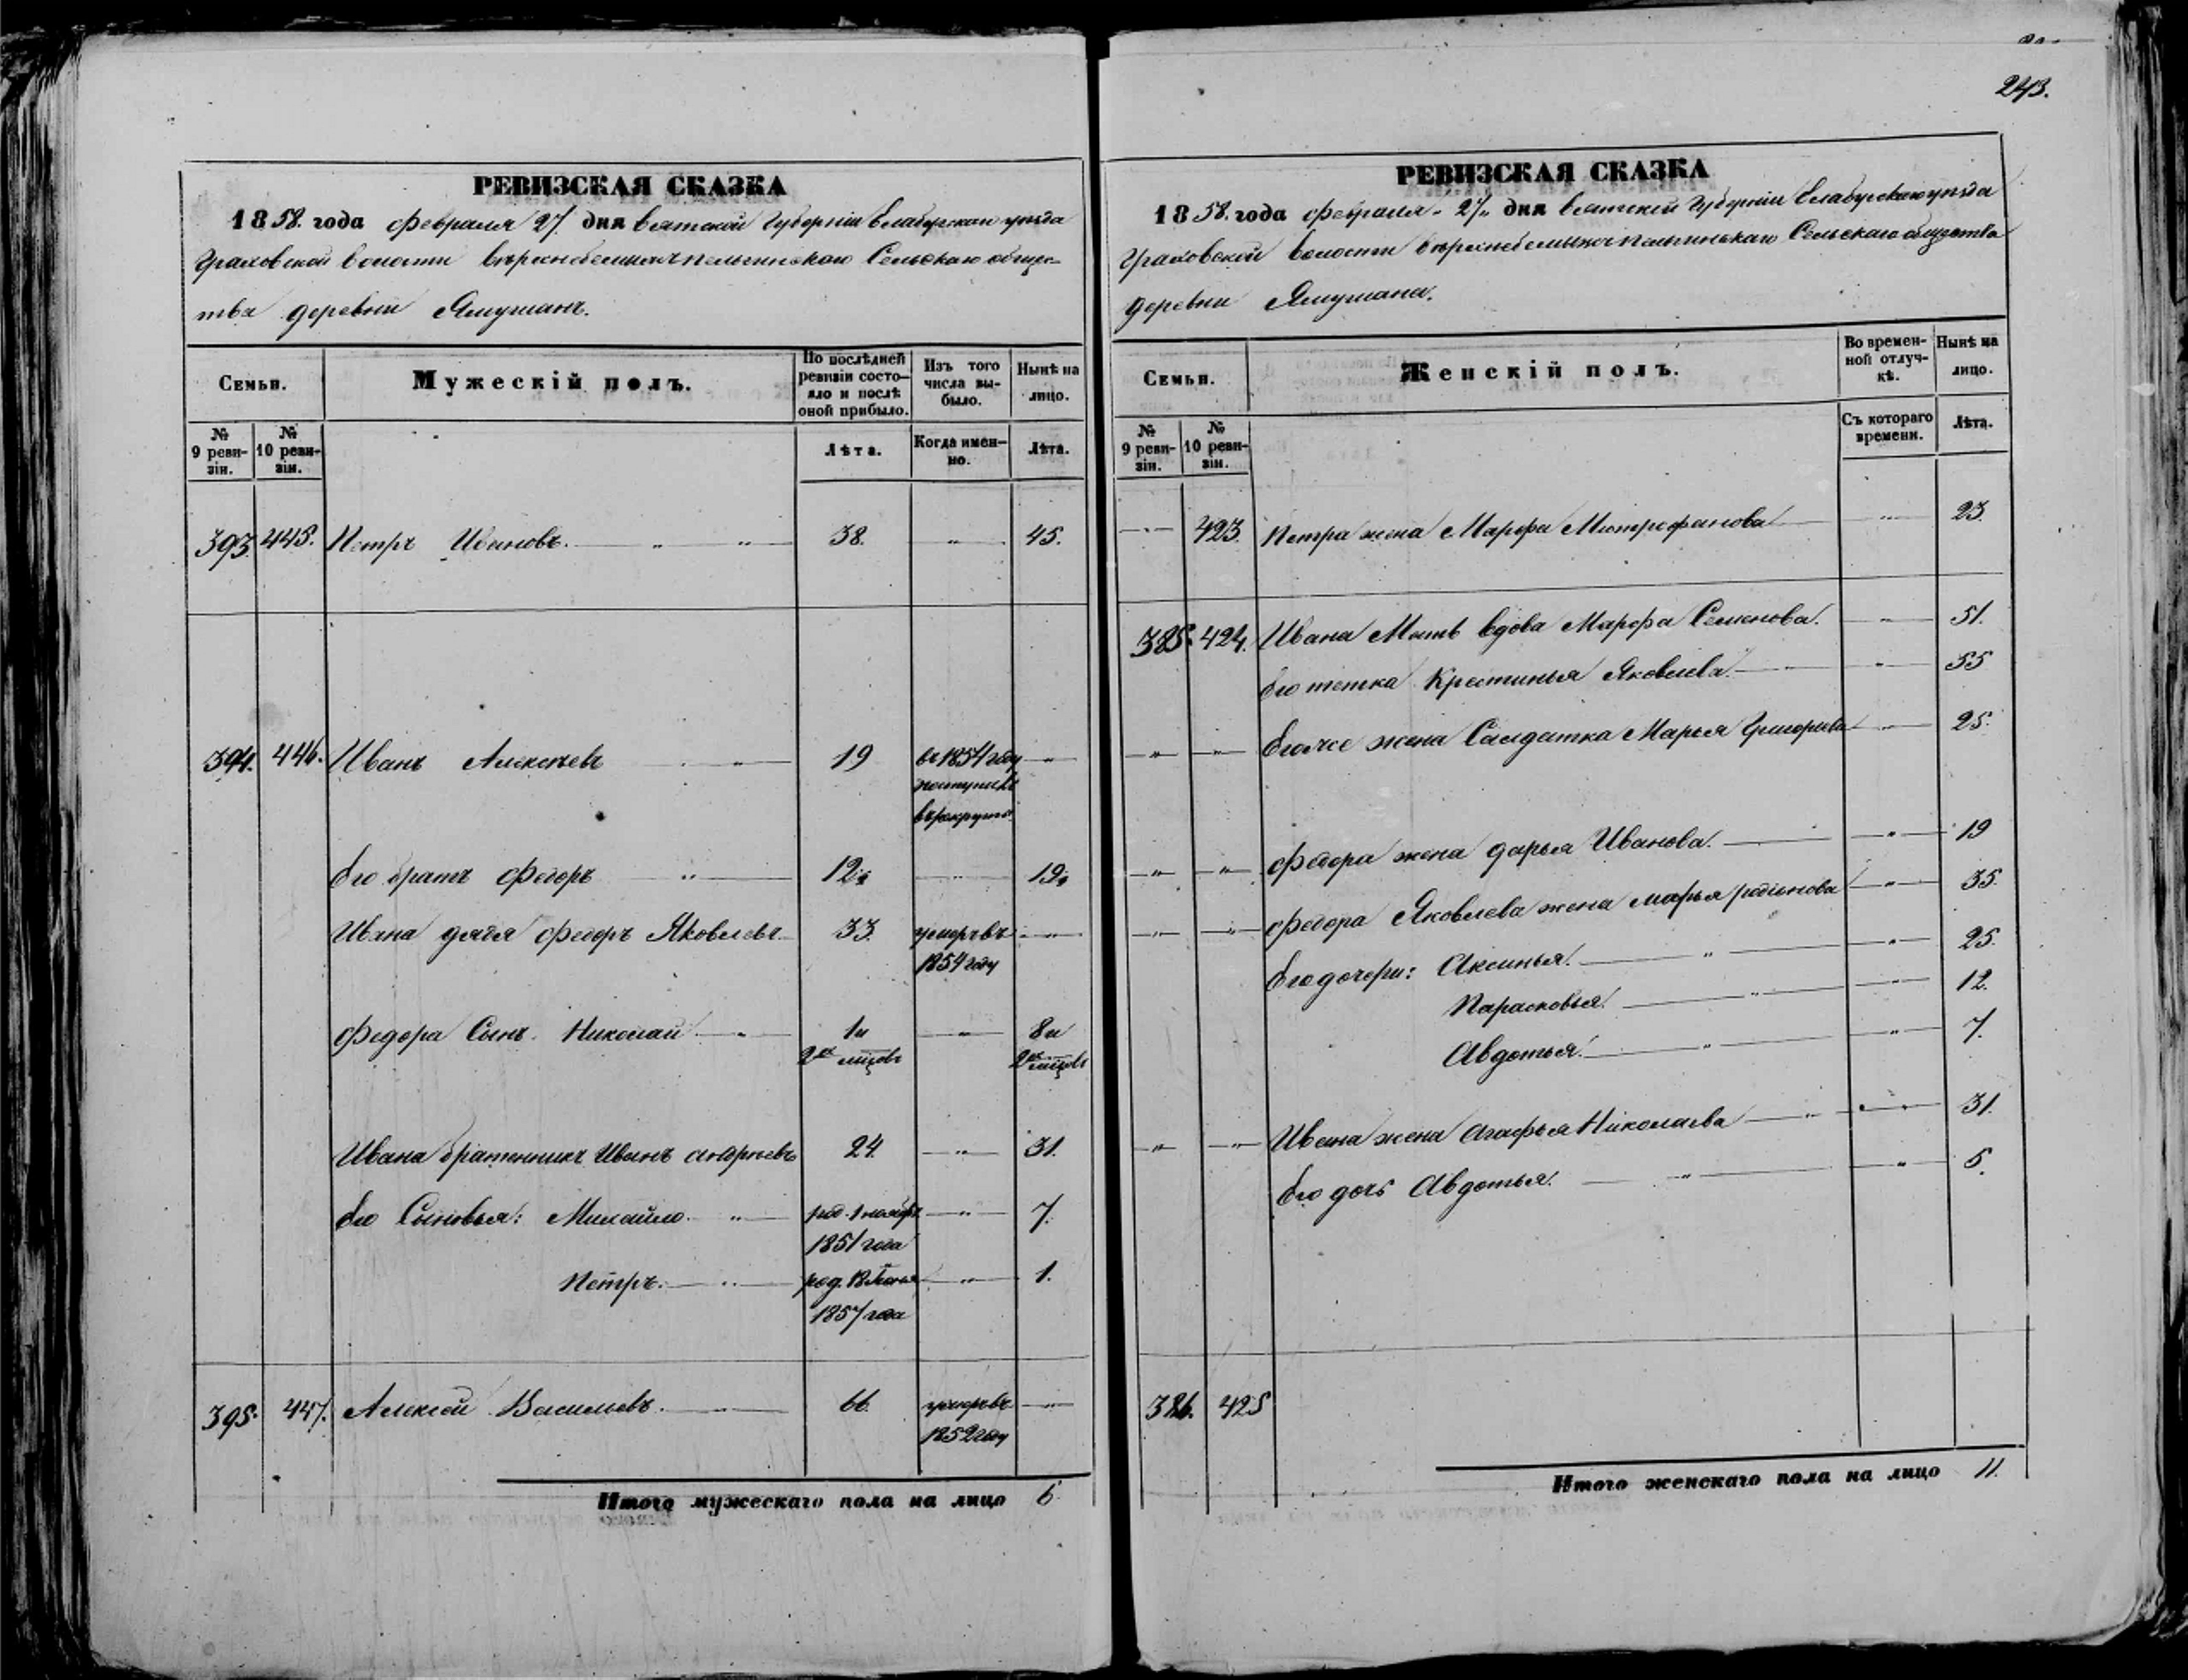 243.
РЕВИЗСКАЯ СКАЗКА
1858. года февраля 27 дня Вятской Губернiи Елабугскаго уѣзда
Граховской волости Сельскаго общес-
тва деревни Ямушанъ.
Семьи.
Мужескiй полъ.
По послѣдней ревизiи состо-яло и послѣ оной прибыло.
Изъ того числа вы-было.
Нынѣ на лицо.
№ 9 реви-зiи.
№ 10 реви-зiи.
Лѣта.
Когда имен-но.
Лѣта.
393. 445. Петръ Ивановъ. 38. 45.
394. 446. Иванъ Алексѣевъ 19 въ 1854 году
поступилъ
въ рекруты
Его братъ Федоръ 12½ 19½
Ивана дядя Федоръ Яковлевъ 33 умеръ въ
1854 году
Федора Сынъ Николай 1 и 8 и
2х мѣсяцовъ 2х мѣсяцовъ
Ивана братенникъ Иванъ Андреевъ 24. 31.
Его Сыновья: Михайло. род. 1 ноября 7.
1851 года
Петръ. род. 1.
1857 года
395. 447. Алексѣй Васильевъ. 66. умеръ въ
1852 году
Итого мужескаго пола на лицо 6
РЕВИЗСКАЯ СКАЗКА
1858. года февраля 27 дня Вятской Губернiи Елабугскаго уѣзда
Граховской волости Сельскаго общества
деревни Ямушана.
Семьи.
Женскiй полъ.
Во времен-ной отлуч-кѣ.
Нынѣ на лицо.
№ 9 реви-зiи.
№ 10 реви-зiи.
Съ котораго времени.
Лѣта.
423. Петра жена Марфа Митрофанова 23.
385. 424. Ивана Мать вдова Марфа Семенова. 51.
Его тетка Крестинья Яковлева. 55
Егоже жена Салдатка Марья Григорьева 25.
Федора жена дарья Иванова. 19
Федора Яковлева жена марья родiонова 35.
Его дочери: Аксинья. 25.
Парасковья. 12.
Авдотья. 7.
Ивана жена Агафья Николаева 31.
Его дочь Авдотья. 5.
386. 425
Итого женскаго пола на лицо 11.